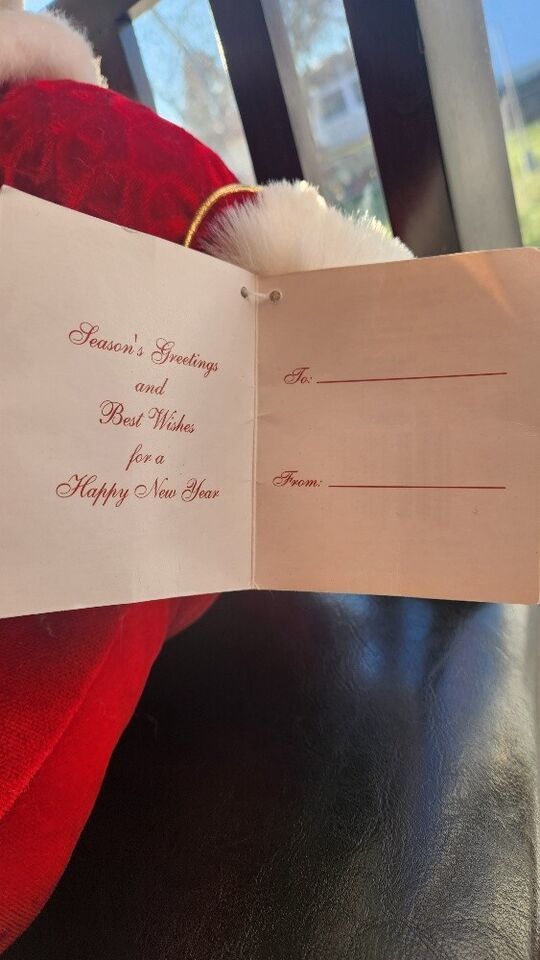 Season's Greetings
and
Best Wishes
for a
Happy New Year
To:
From: